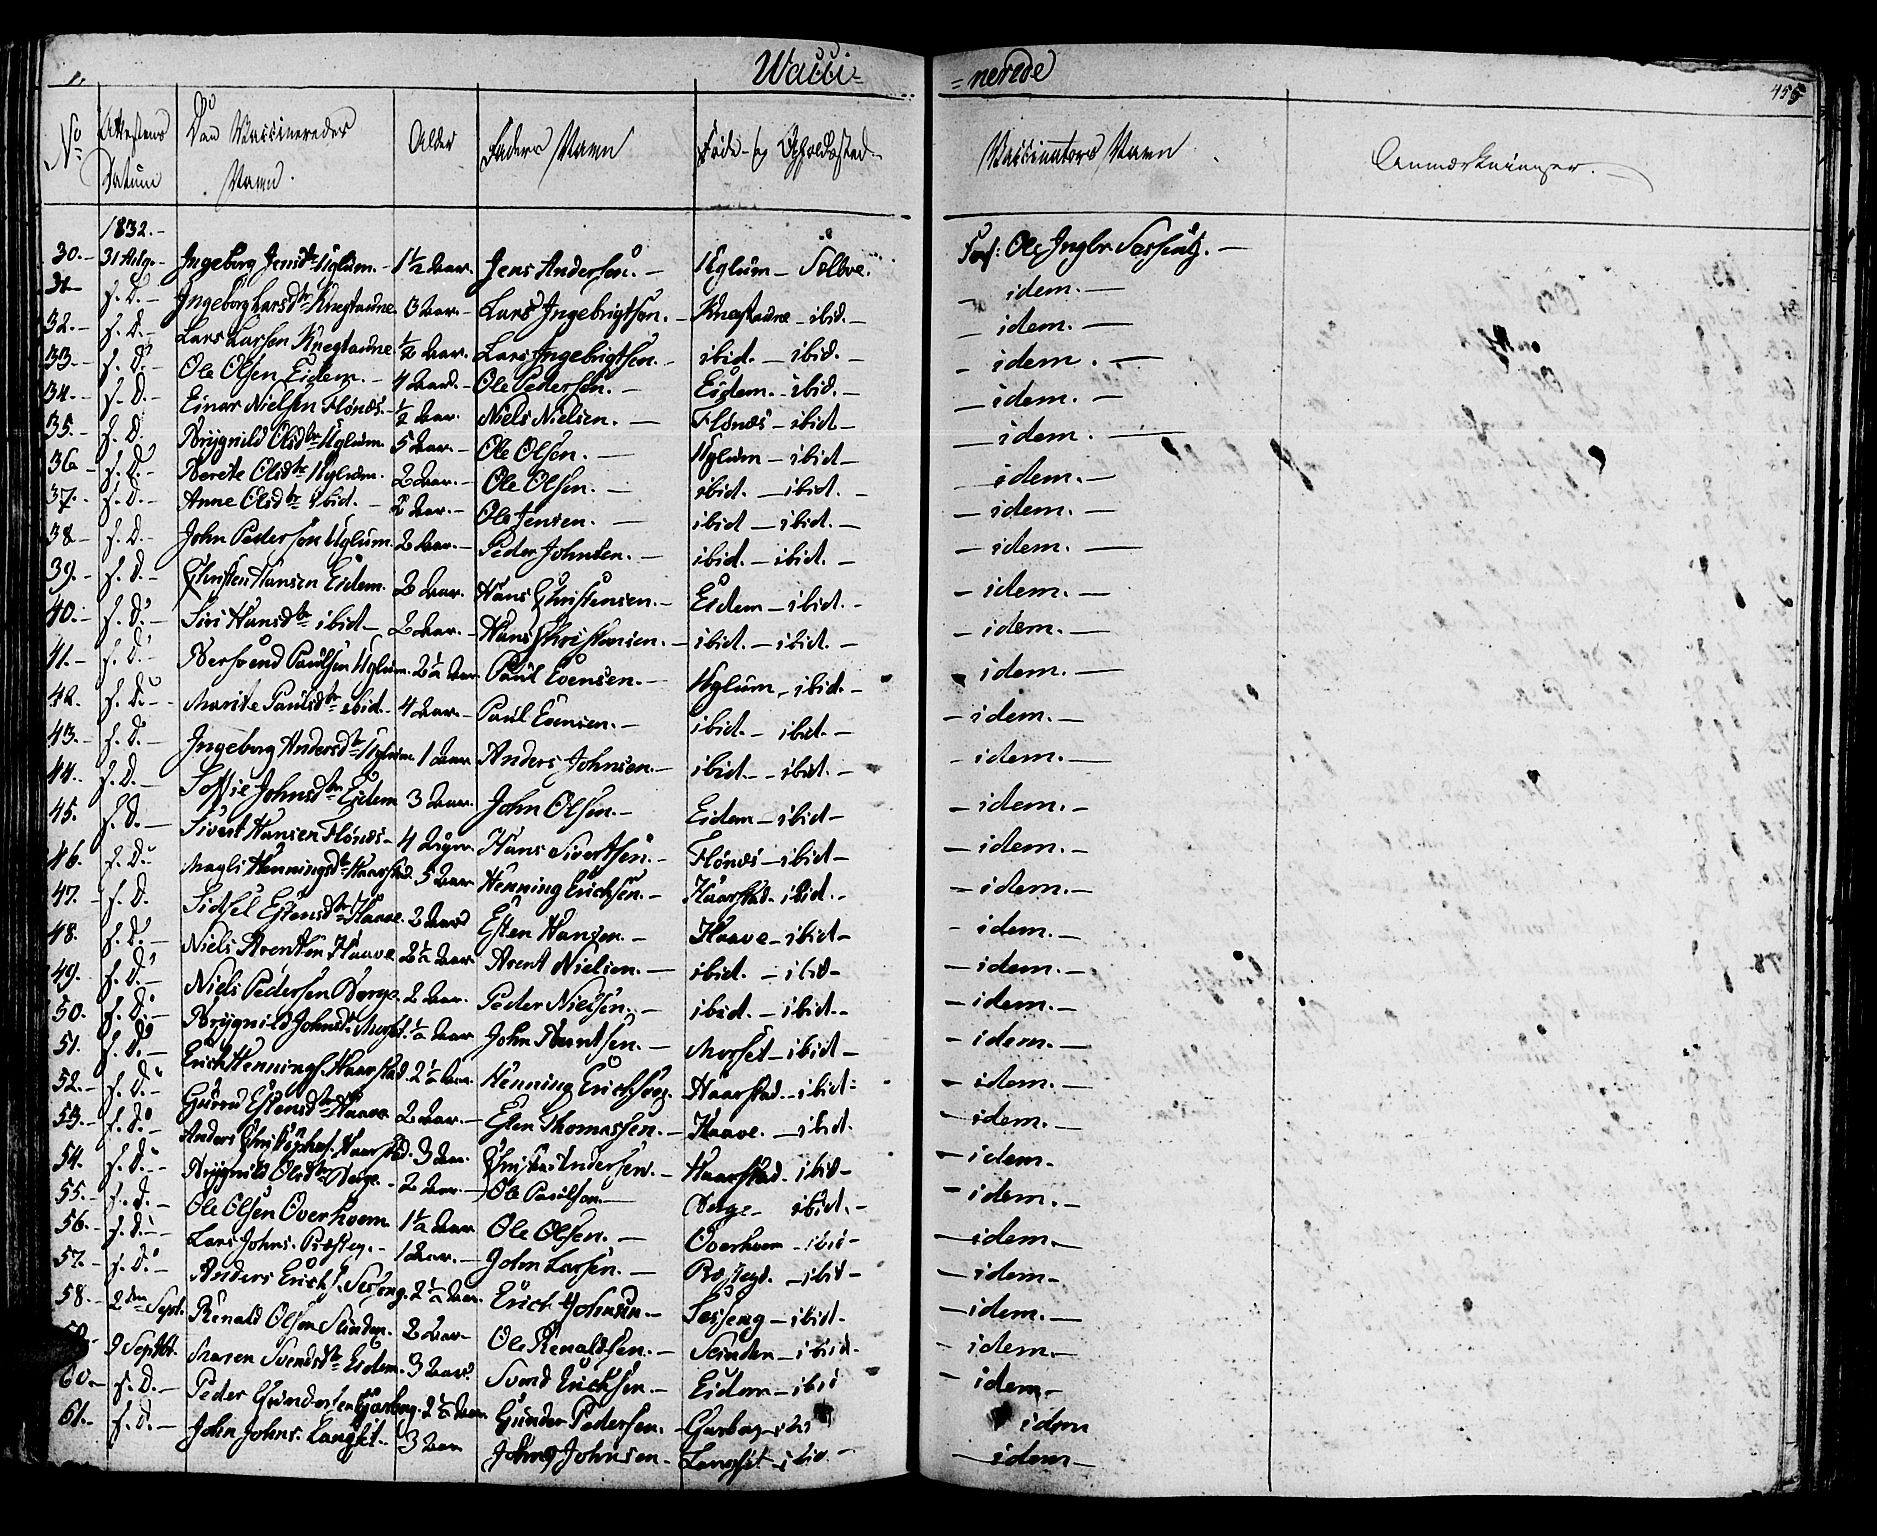 Wacci= =nerede
455
No Attestens Datum Den Vaccineredes Navn. Alder Faders Navn Føde- og Opholdssted Vaccinators Navn Anmærkninger.
1832.-
30.- 31 Aug.- Ingeborg Jensdtr Uglum.- 1½ Aar. Jens Andersen.- Uglum- Selboe. Forf: Ole Inglr Sesseng.-
31- s. D.- Ingeborg Larsdtr Knegtaune 3 Aar.- Lars Ingebrigtsen.- Knegtaune- ibid.- - idem.-
32.- s. D.- Lars Larsen Knegtaune ½ Aar. Lars Ingebrigtsen.- ibid.- ibid.- - idem.-
33- s. D.- Ole Olsen Eidem.- 4 Aar.- Ole Pedersen.- Eidem.- ibid.- - idem.-
34.- s. D.- Einar Nielsen Flönæs.- ½ Aar. Niels Nielsen.- Flönæs- ibid- - idem.-
35.- s. D. Brÿgnild Olsdtr Uglum. 5 Aar.- Ole Olsen.- Uglum- ibid- - idem.-
36- s. D- Berete Olsdtr Uglum. 2 Aar.- Ole Olsen.- ibid.- ibid.- - idem.-
37.- s. D.- Anne Olsdtr ibid.- 2 Aar.- Ole Jensen.- ibid- ibid.- - idem.-
38- s. D.- John Pedersen Uglum. 2 Aar.- Peder Johnsen.- ibid.- ibid.- - idem.-
39.- s. D.- Christen Hansen Eidem. 2 Aar. Hans Christensen.- Eidem- ibid.- - idem.-
40.- s. D.- Siri Hansdtr ibid- 2 Aar.- Hans Christensen.- ibid.- ibid.- - idem.-
41.- s. D.- Bersvend Paulsen Uglum. 2½ Aar Paul Evensen.- Uglum- ibid.- - idem.-
42. s. D.- Marite Paulsdtr ibid.- 4 Aar.- Paul Evensen.- ibid.- ibid.- - idem.-
43.- s. D.- Ingeborg Andersdtr Uglum. 1 Aar Anders Johnsen.- ibid.- ibid.- - idem.-
44.- s. D.- Soffie Johnsdtr Eidem 3 Aar. John Olsen.- Eidem- ibid- - idem.-
45. s. D.- Sivert Hansen Flönæs- 4 Uger. Hans Sivertsen.- Flönæs- ibid- - idem.-
46. s. D. Magli Henningsdtr Haarstad. 5 Aar Henning Erichsen.- Haarstad- ibid.- - idem.-
47.- s. D. Sidsel Estensdtr Haave. 2 Aar Esten Hansen.- Haave- ibid- - idem.-
48. s. D.- Niels Arentsen Haave 2½ Aar. Arent Nielsen.- ibid.- ibid- - idem.-
49. s. D.- Niels Pedersen Berge. 2 Aar. Peder Nielsen.- ibid.- ibid.- - idem.-
50. s. D.- Brÿgnild Johnsdtr Morset. ½ Aar John Berntsen.- Morset- ibid- - idem.-
51. s. D.- Erich Hennings. Haarstad. 2½ Aar. Henning Erichsen.- Haarstad.- ibid- - idem.-
52.- s. D. Guroud Estensdtr Haave 2 Aar.- Esten Thomassen.- Haave.- ibid. - idem.-
53.- s. D.- Anders Haarstad. 3 Aar. Andersen.- Haarstad- ibid- - idem.-
54. s. D.- Brÿgnild Olsdtr Berge.- 2 Aar.- Ole Paulsen.- Berge- ibid.- - idem.-
55.- s. D.- Ole Olsen Overhvem 1½ Aar Ole Olsen.- Overhvem- ibid- - idem.-
56.- s. D.- Lars Johns. Præsteg.- 1 Aar.- John Larsen.- Præstegd.- ibid- - idem.-
57.- s. D.- Anders Erichs. Sesseng. 2½ Aar Erich Johnsen.- Sesseng- ibid.- - idem-
58.- 2den Sept. Renald Olsen Slinden. 2 Aar- Ole Renaldsen.- Slinden- ibid.- - idem.-
59.- 9 Septbr. Maren Svendsdtr Eidem. 3 Aar. Svend Erichsen.- Eidem- ibid - idem.-
60.- s. D.- Peder Gundersen Garberg. 2½ Aar. Gunder Pedersen.- Garberg- ibid idem
61.- s. D.- John Johns. Langset.- 3 Aar John Johnsen.- Langset- ibid.- - idem-